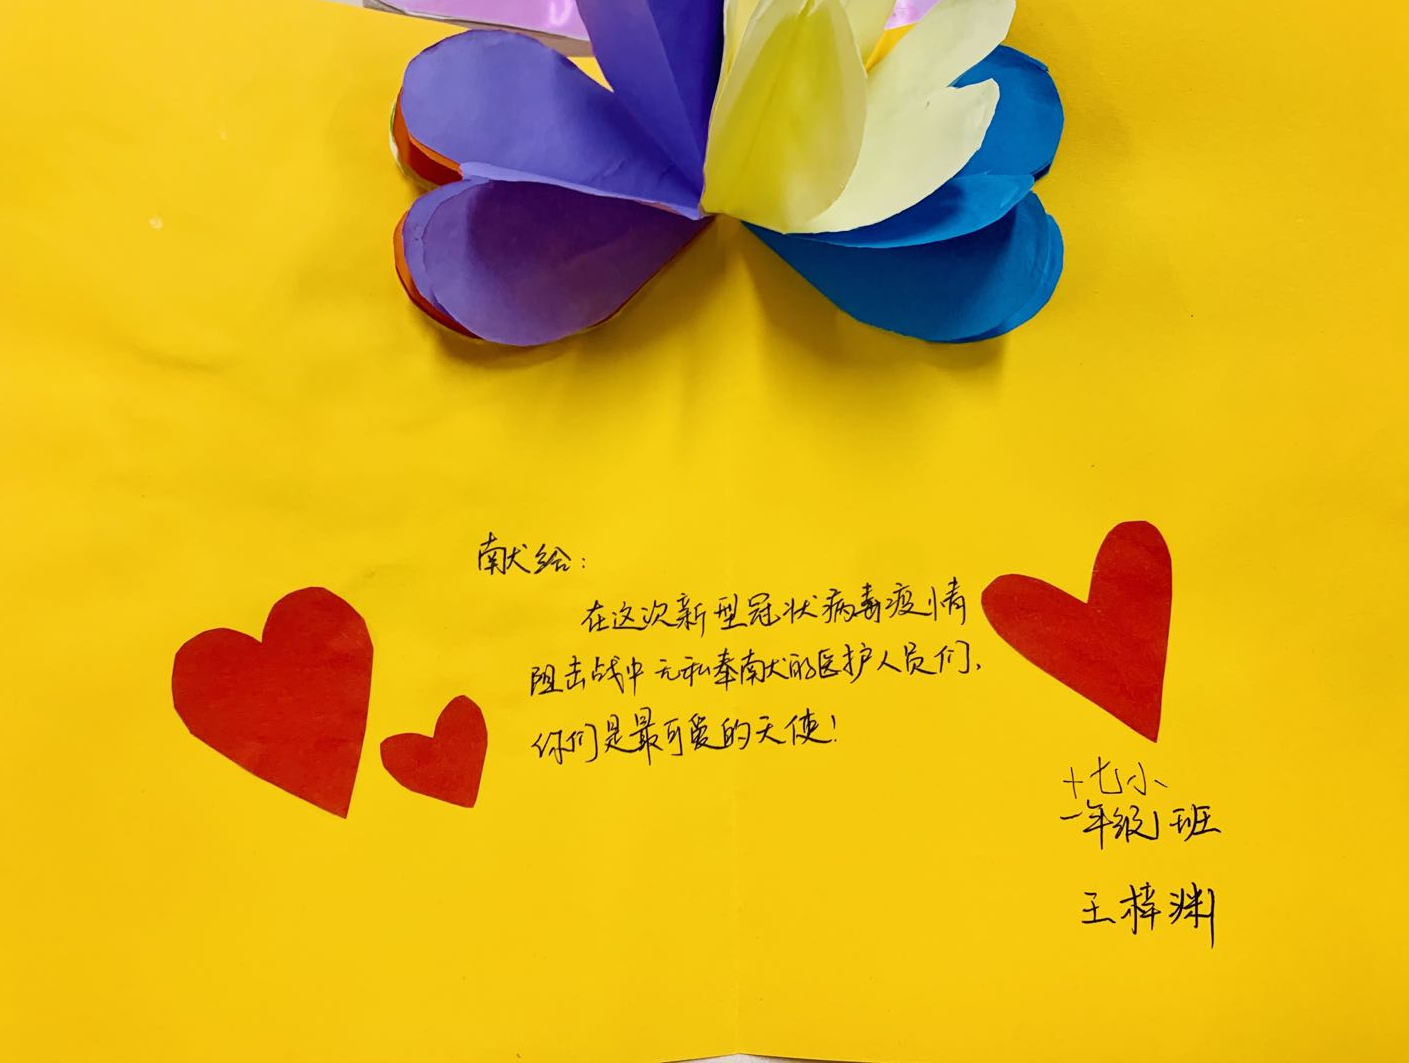 献给：
在这次新型冠状病毒疫情
阻击战中无私奉献的医护人员们，
你们是最可爱的天使！
十七小
一年级1班
王梓渊